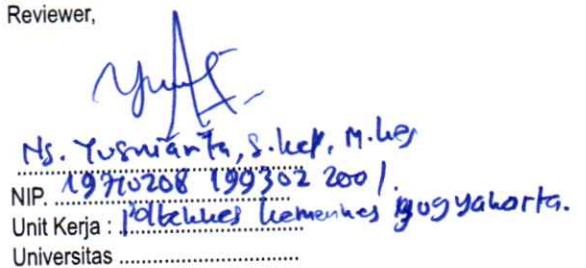 Reviewer,
Ns. Yusniarta, S.kep, M.kes
NIP. 19710208 199302 2001.
Unit Kerja : Poltekkes Kemenkes Yogyakarta.
Universitas ..............................